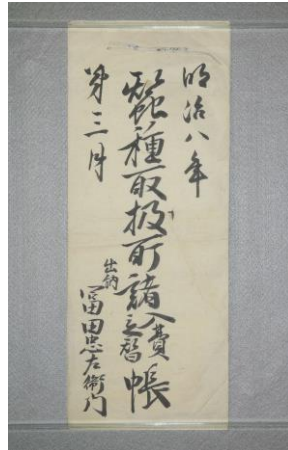 明治八年
蚕種取扱所諸入費立替帳
第三月
出納
冨田忠左衛門